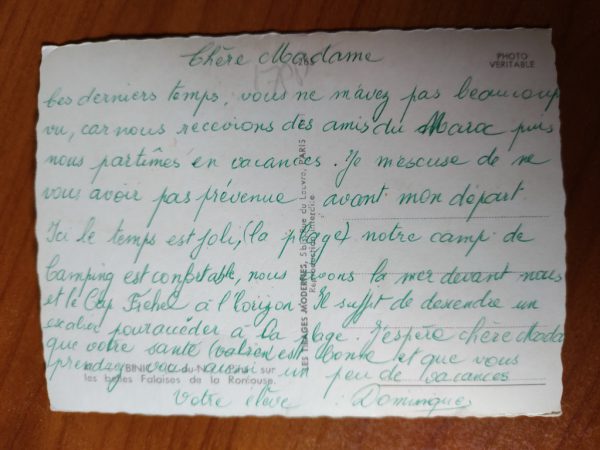 Chère Madame
PHOTO
VERITABLE
Ces derniers temps, vous ne m'avez pas beaucoup
vu, car nous recevions des amis du Maroc puis
nous partîmes en vacances. Je m'escuse de ne
vous avoir pas prévenue avant mon départ.
Ici le temps est joli, (la plage) notre camp de
camping est confortable, nous avons la mer devant nous
et le Cap Fréhel à l'horizon. Il suffit de dexendre un
escalier pour accéder à la plage. J'espère chère Mada
que votre santé est bonne et que vous
prendrez un peu de vacances
Votre élève Dominique
LES IMAGES MODERNES, 5 rue du Louvre, PARIS
Reproduction interdite
BINIC (C.-du-N.) sur
les belles Falaises de la Rontouse.